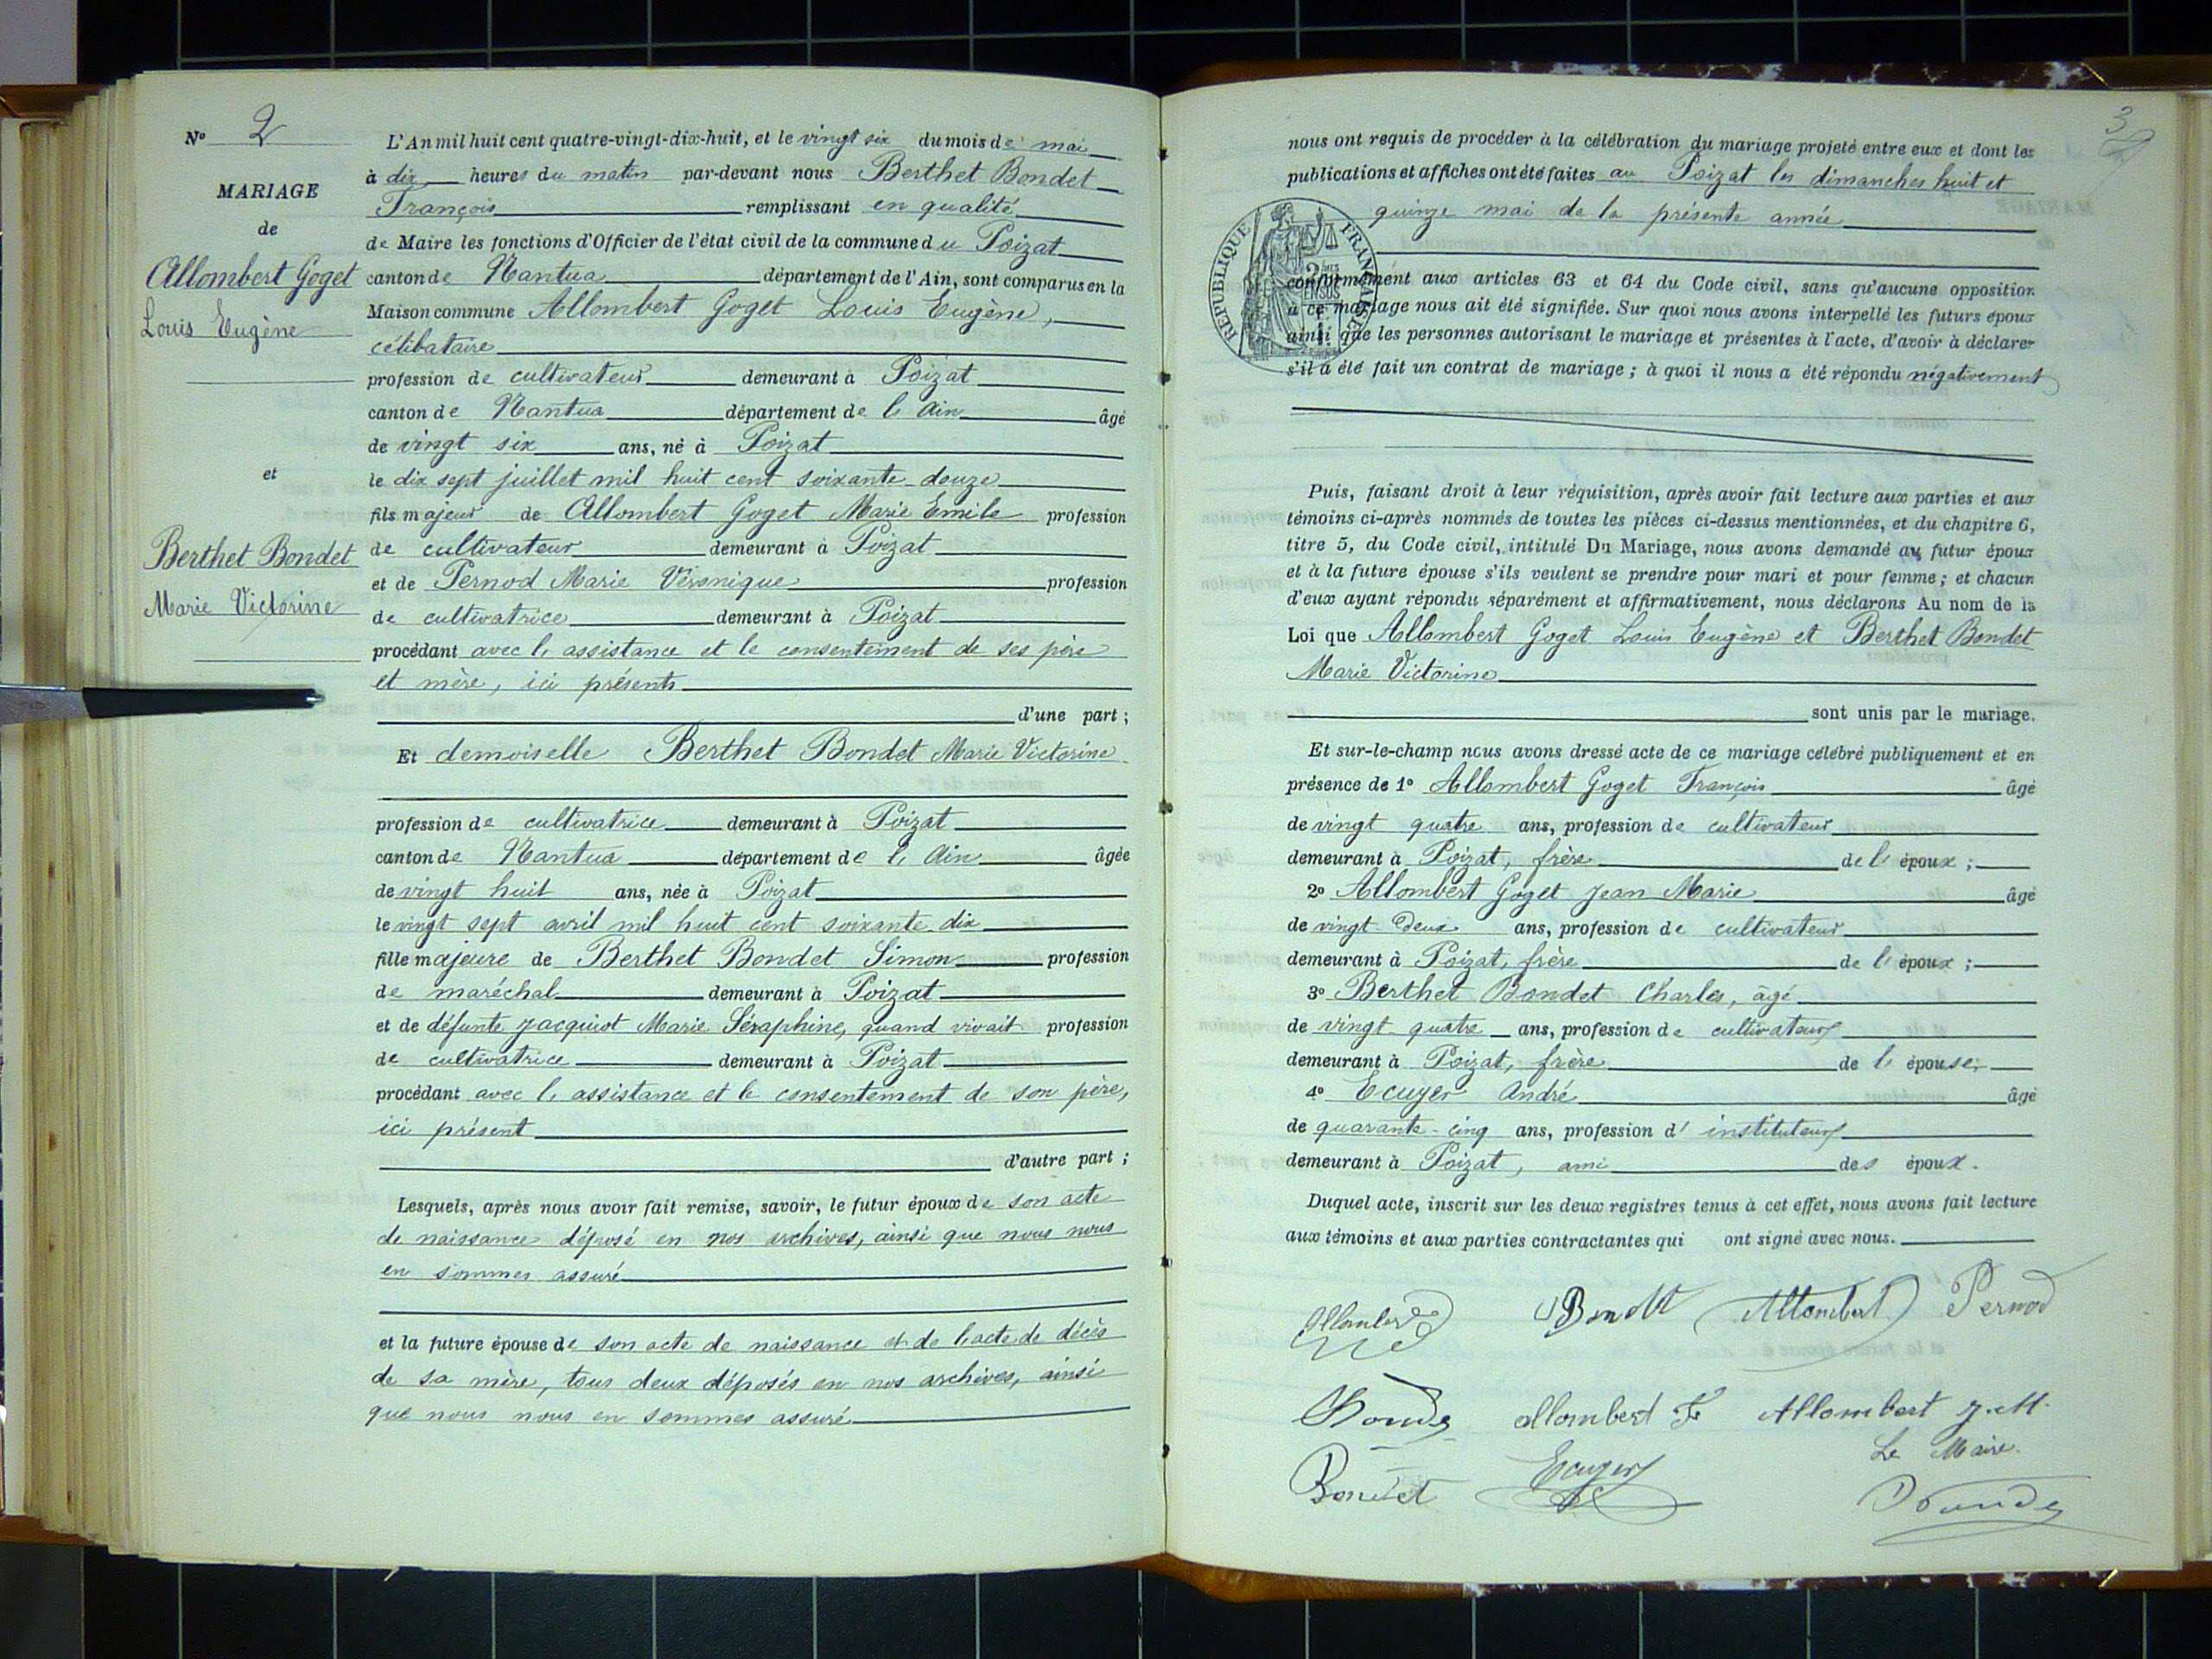 N° 2
MARIAGE
de
Allombert Goget
Louis Eugène
et
Berthet Bondet
Marie Victorine
L'An mil huit cent quatre-vingt-dix-huit, et le vingt six du mois de mai
à dix heures du matin par-devant nous Berthet Bondet
François remplissant en qualité
de Maire les fonctions d'Officier de l'état civil de la commune du Poizat
canton de Nantua département de l'Ain, sont comparus en la
Maison commune Allombert Goget Louis Eugène,
célibataire
profession de cultivateur demeurant à Poizat
canton de Nantua département de l'Ain âgé
de vingt six ans, né à Poizat
le dix sept juillet mil huit cent soixante-douze
fils majeur de Allombert Goget Marie Emile profession
de cultivateur demeurant à Poizat
et de Pernod Marie Véronique profession
de cultivatrice demeurant à Poizat
procédant avec l'assistance et le consentement de ses père
et mère, ici présents
d'une part ;
Et demoiselle Berthet Bondet Marie Victorine
profession de cultivatrice demeurant à Poizat
canton de Nantua département de l'Ain âgée
de vingt huit ans, née à Poizat
le vingt sept avril mil huit cent soixante-dix
fille majeure de Berthet Bondet Simon profession
de maréchal demeurant à Poizat
et de défunte Jacquiot Marie Séraphine, quand vivait profession
de cultivatrice demeurant à Poizat
procédant avec l'assistance et le consentement de son père,
ici présent
d'autre part ;
Lesquels, après nous avoir fait remise, savoir, le futur époux de son acte
de naissance déposé en nos archives, ainsi que nous nous
en sommes assuré
et la future épouse de son acte de naissance et de l'acte de décès
de sa mère, tous deux déposés en nos archives, ainsi
que nous nous en sommes assuré
3
nous ont requis de procéder à la célébration du mariage projeté entre eux et dont les
publications et affiches ont été faites au Poizat les dimanches huit et
quinze mai de la présente année
RÉPUBLIQUE FRANÇAISE
conformément aux articles 63 et 64 du Code civil, sans qu'aucune opposition
à ce mariage nous ait été signifiée. Sur quoi nous avons interpellé les futurs époux
ainsi que les personnes autorisant le mariage et présentes à l'acte, d'avoir à déclarer
s'il a été fait un contrat de mariage ; à quoi il nous a été répondu négativement
Puis, faisant droit à leur réquisition, après avoir fait lecture aux parties et aux
témoins ci-après nommés de toutes les pièces ci-dessus mentionnées, et du chapitre 6,
titre 5, du Code civil, intitulé Du Mariage, nous avons demandé au futur époux
et à la future épouse s'ils veulent se prendre pour mari et pour femme ; et chacun
d'eux ayant répondu séparément et affirmativement, nous déclarons Au nom de la
Loi que Allombert Goget Louis Eugène et Berthet Bondet
Marie Victorine
sont unis par le mariage.
Et sur-le-champ nous avons dressé acte de ce mariage célébré publiquement et en
présence de 1° Allombert Goget François âgé
de vingt quatre ans, profession de cultivateur
demeurant à Poizat, frère de l'époux ;
2° Allombert Goget Jean Marie âgé
de vingt-deux ans, profession de cultivateur
demeurant à Poizat, frère de l'époux ;
3° Berthet Bondet Charles, âgé
de vingt-quatre ans, profession de cultivateur
demeurant à Poizat, frère de l'épouse;
4° Ecuyer André âgé
de quarante-cinq ans, profession d'instituteur
demeurant à Poizat, ami des époux.
Duquel acte, inscrit sur les deux registres tenus à cet effet, nous avons fait lecture
aux témoins et aux parties contractantes qui ont signé avec nous.
Allombert Pernod
Allombert F Allombert J.M.
Le Maire
Bondet Ecuyer